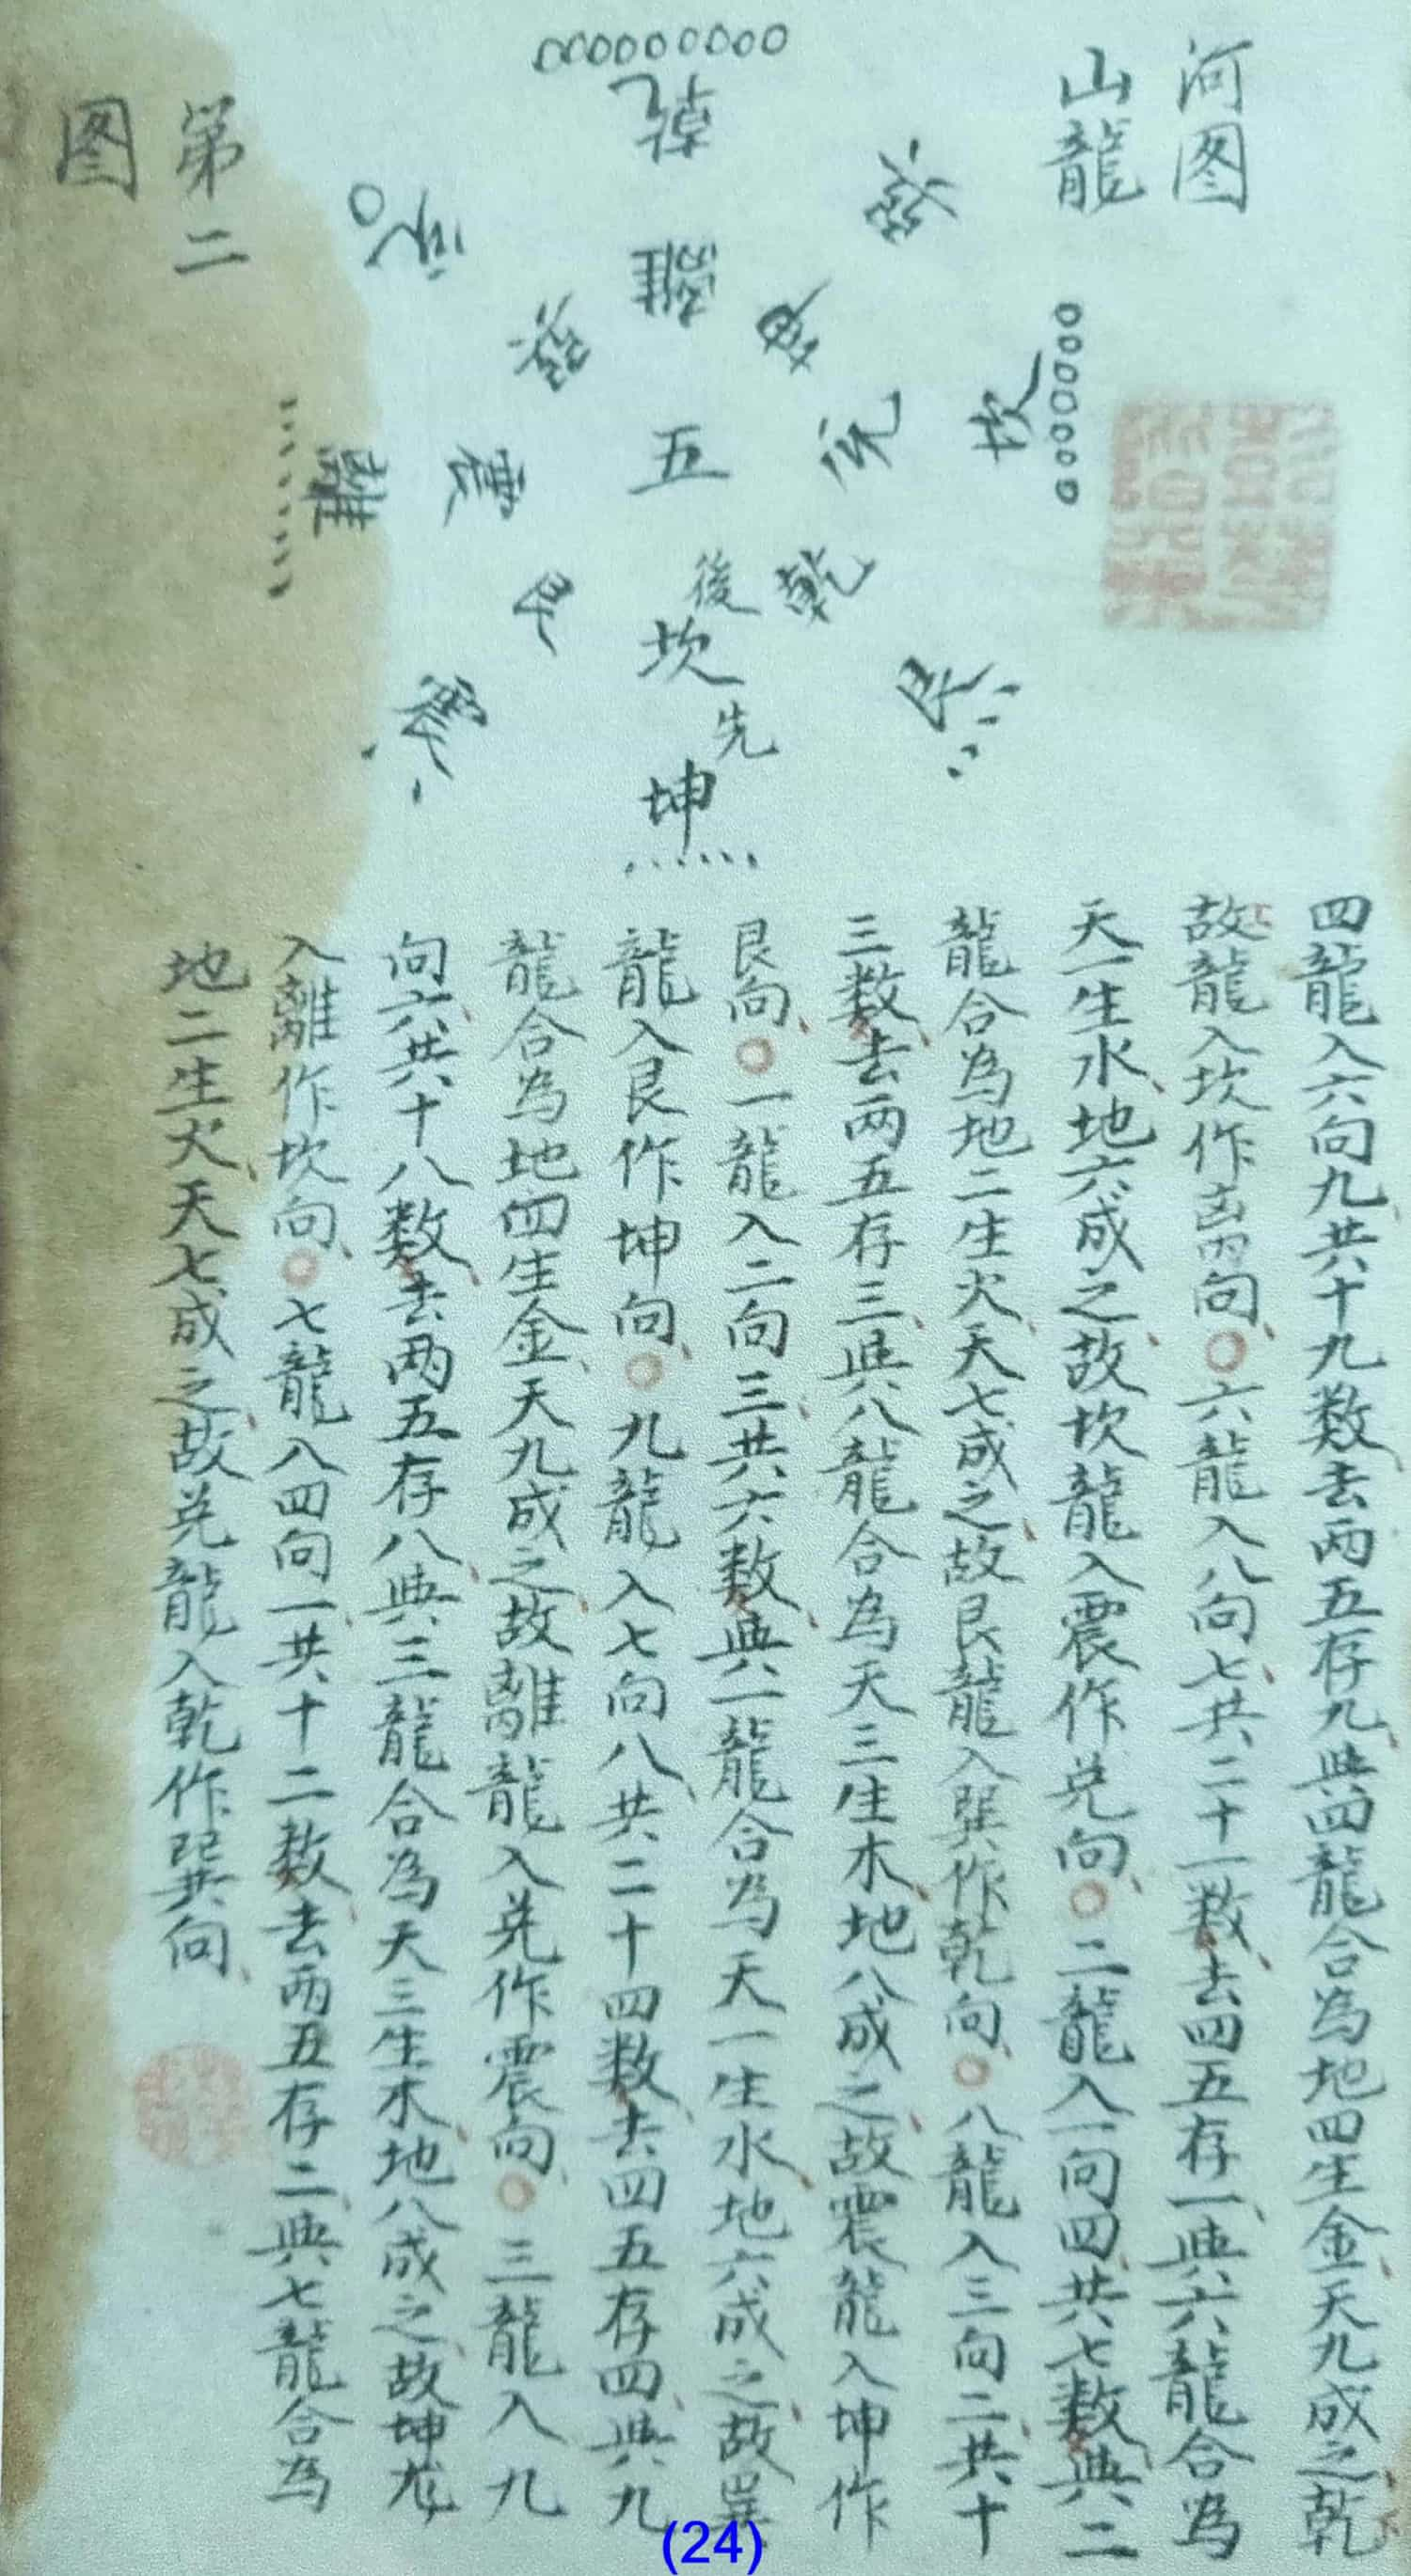 河图
山龍
乾
兌
巽
坎
離
坤
巽
兌
五
震
離
後
乾
艮
坎
艮
先
震
坤
第二
图
四龍入六向九共十九数去兩五存九與四龍合為地四生金天九成之乾
故龍入坎作离向〇六龍入八向七共二十一数去四五存一與六龍合為
天一生水地六成之故坎龍入震作兌向〇二龍入一向四共七数與二
龍合為地二生火天七成之故艮龍入巽作乾向〇八龍入三向二共十
三数去兩五存三與八龍合為天三生木地八成之故震龍入坤作
艮向〇一龍入二向三共六数與一龍合為天一生水地六成之故巽
龍入艮作坤向〇九龍入七向八共二十四数去四五存四與九
龍合為地四生金天九成之故離龍入兌作震向〇三龍入九
向六共十八数去兩五存八與三龍合為天三生木地八成之故坤龙
入離作坎向〇七龍入四向一共十二数去兩五存二與七龍合為
地二生火天七成之故兌龍入乾作巽向
(24)